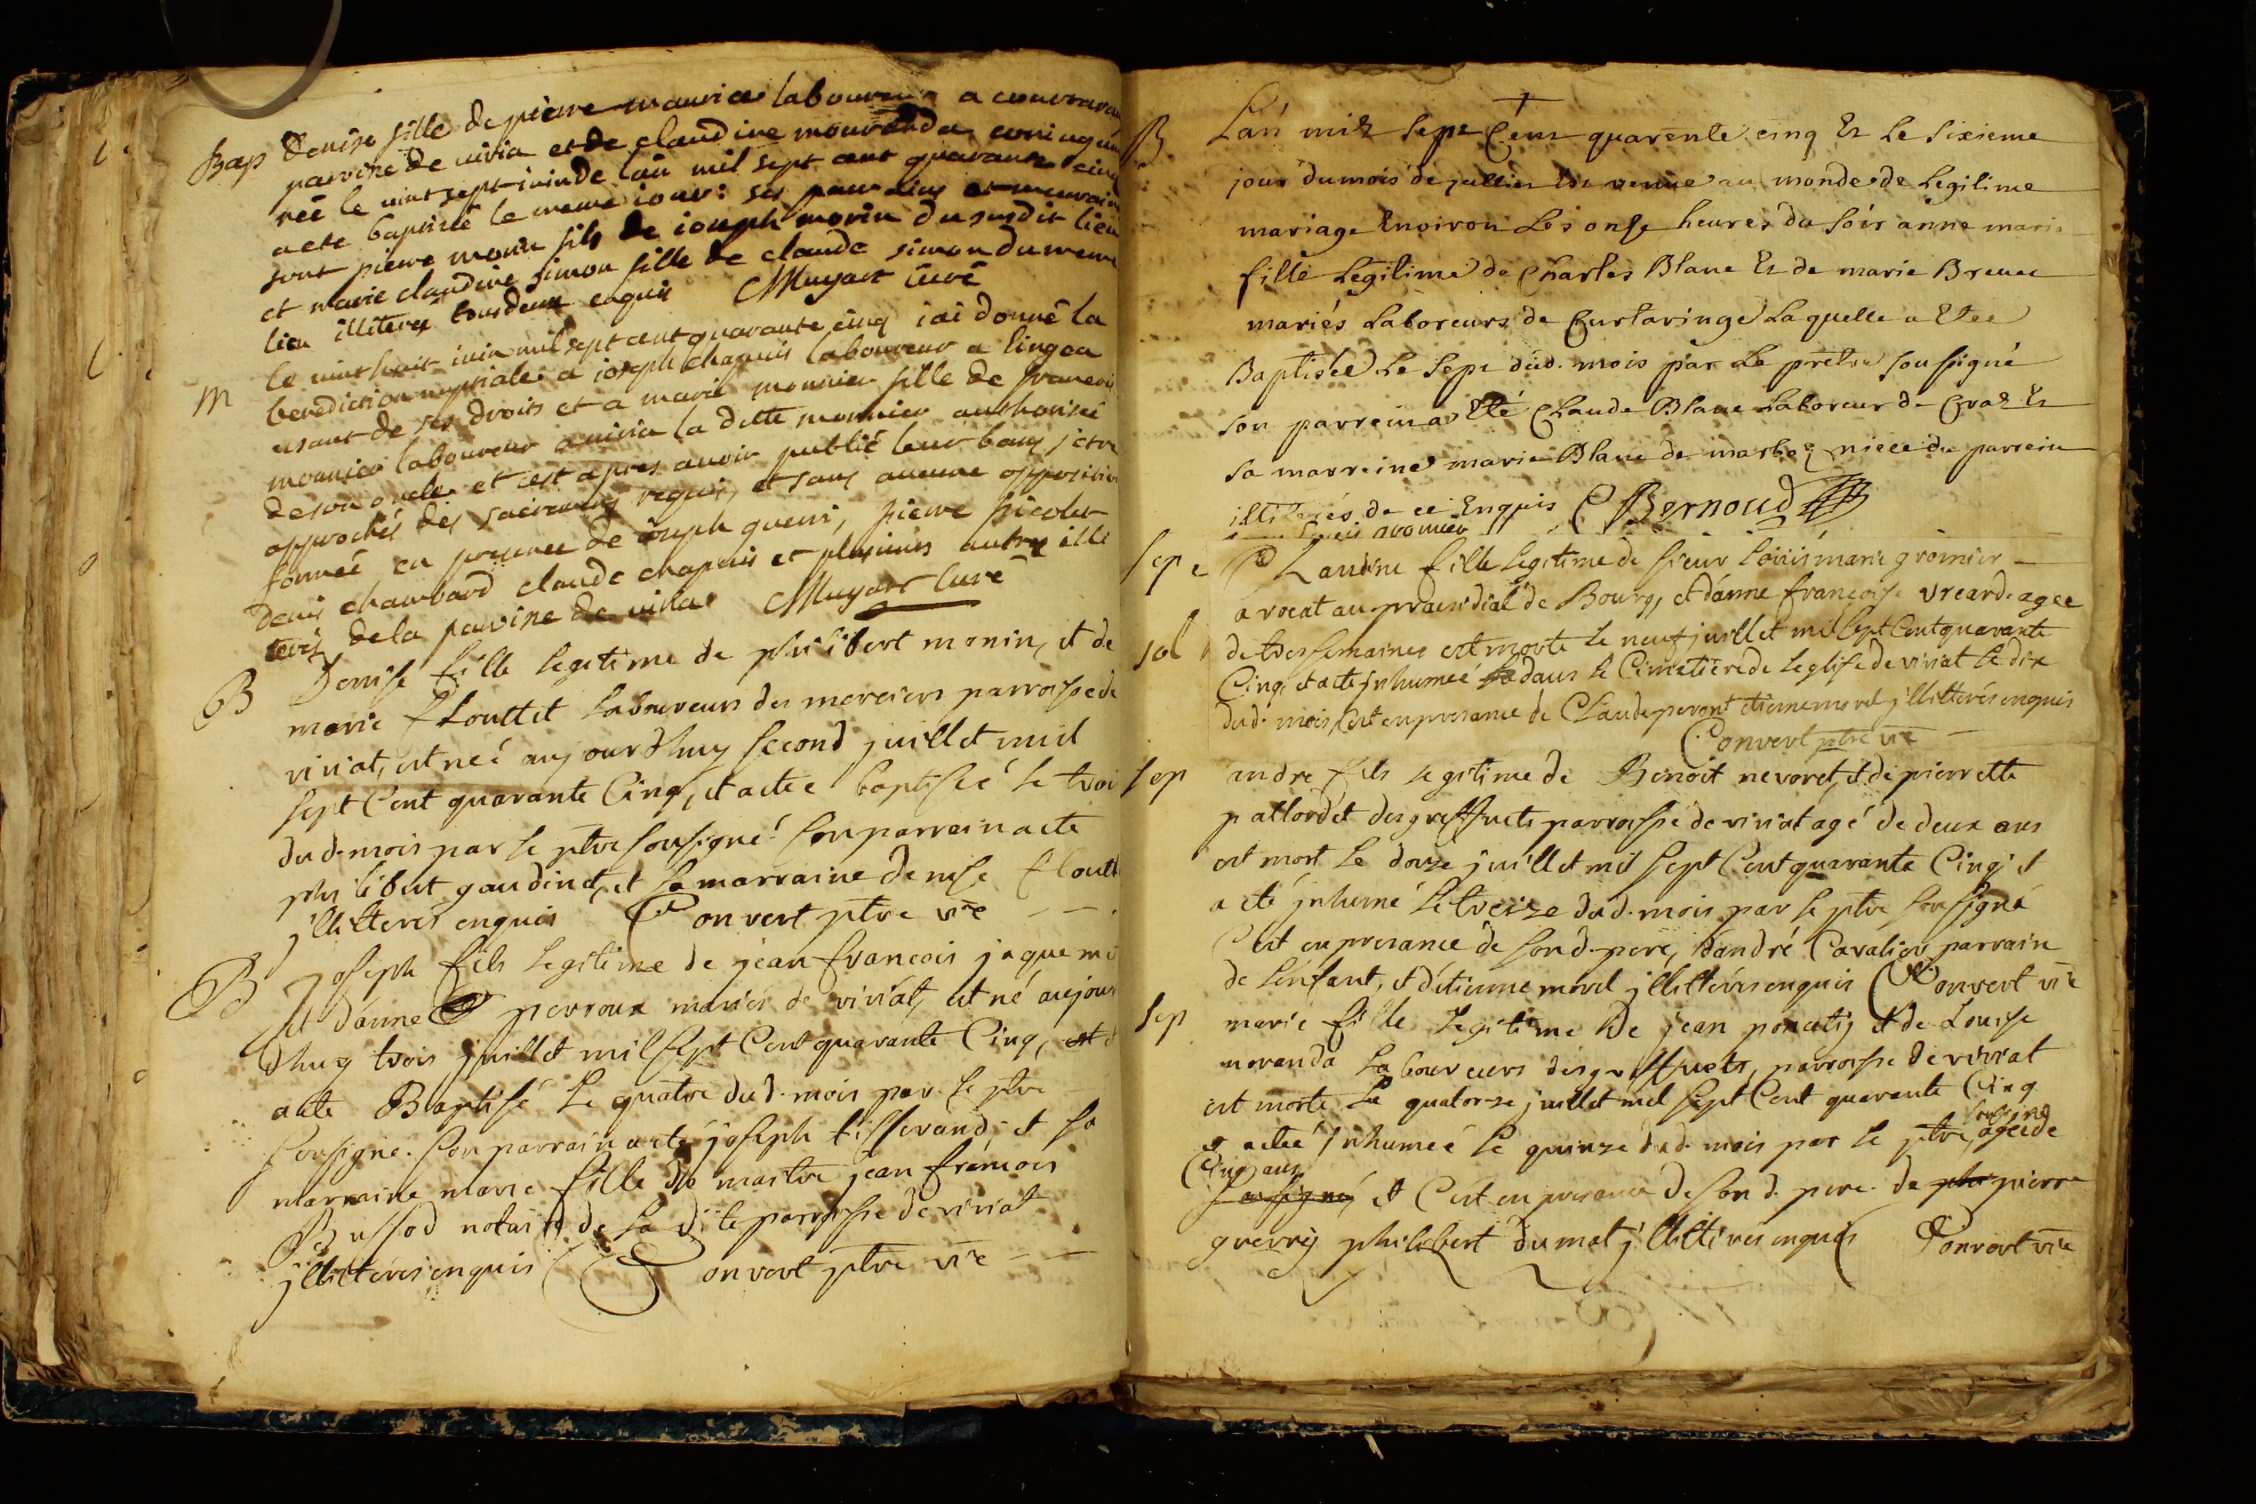 Bap Denise fille de pierre maurice laboureur a
paroisse de viria et de claudine mourandas
née le vint sept iuin de l'an mil sept cent quarante cinq
a ete baptisée le meme iour: ses
sont pierre morin fils de ioseph morin du susdit lieu
et marie claudine simon fille de claude simon du meme
lieu illiterez tous deux enquis Muyart curé
M le vint huit iuin mil sept cent quarante cinq iai donné la
benediction nuptiale a ioseph chapuis laboureur a lingea
usant de ses droits et a marie mounier fille de francois
mounier laboureur a viria la ditte mounier authorisée
de son oncle et c'est apres avoir publié leur bans s'etre
approchés des sacremens requis, et sans aucune opposition
formée, en presence de ioseph guerri, pierre picolet
denis chambard claude chapuis et plusieurs autres illi
terez de la paroisse de viria Muyart Curé
B Denise fille legitime de philibert monin, et de
marie flouttet laboureurs des merciers parroisse de
viriat, est neé aujourdhuy second juillet mil
sept Cent quarante Cinq, et a etee baptisée le troi
dud. mois par le ptre sousigné. son parrain a ete
philibert gaudinet, et sa marraine denise flout
jllitterés enquis Convert ptre vre
B joseph fils legitime de jean francois jaquemi
et d'anne perroux mariés de viriat, est né aujour
dhuy trois juillet mil sept Cent quarante Cinq, et
a ete Baptisé le quatre dud. mois par le ptre
sousigné. son parrain a ete joseph tisserand, et sa
marraine marie fille de maitre jean francois
Bussod notaire de la dite parroisse de viriat
jllitterés enquis Convert ptre vre
B L'an mil sept Cent quarente cinq Et Le Sixieme
jour du mois de jullier Est venue au monde de Legitime
mariage Environ Les onse heures du soir anne marie
fille Legitime de Charles Blanc Et de marie Brevet
mariés Laboreurs de Curtaringe Laquelle a Etee
Baptisée Le Sept dud. mois par Le prêtre sousigné
son parrein a Eté Claude Blanc Laboreur de Cras Et
sa marreine marie Blanc de marboz niece du parrein
illiterés de ce Enquis C Bernoud
Sep e Claudine fille legitime de sieur Loüis marie gromier
avocat au praesidial de Bourg, et d'anne francoise vreard. agee
de tres semaines est morte le neuf juillet mil sept Cent quarante
Cinq, et a ete jnhumeé dans le Cimetiere de leglise de viriat le dix
dud. mois, C'est en presance de Claude perout etienne morel jllitterés enquis
Convert ptre vre
Sep andre fils legitime de Benoit nevoret, et de pierrette
pattordet des greffets parroisse de viriat agé de deux ans
est mort le douze juillet mil sept Cent quarante Cinq, et
a eté jnhumé le treize dud. mois par le ptre sousigné
C'est en presance de son d. pere, d'andré Cavalier parrain
de l'enfant, et d'etienne morel jllitterés enquis Convert vre
Sep marie fille legitime de jean poncety et de Louise
moranda laboureurs des greffets, parroisse de viriat
est morte le quatorze juillet mil sept Cent quarante Cinq
et a eteé jnhumeé le quinze dud. mois par le ptre sousigné ageé de
Cinq ans
sousigné, et C'est en presance de son d. pere. de pierre
guerry philibert dumat jllitterés enquis Convert vre